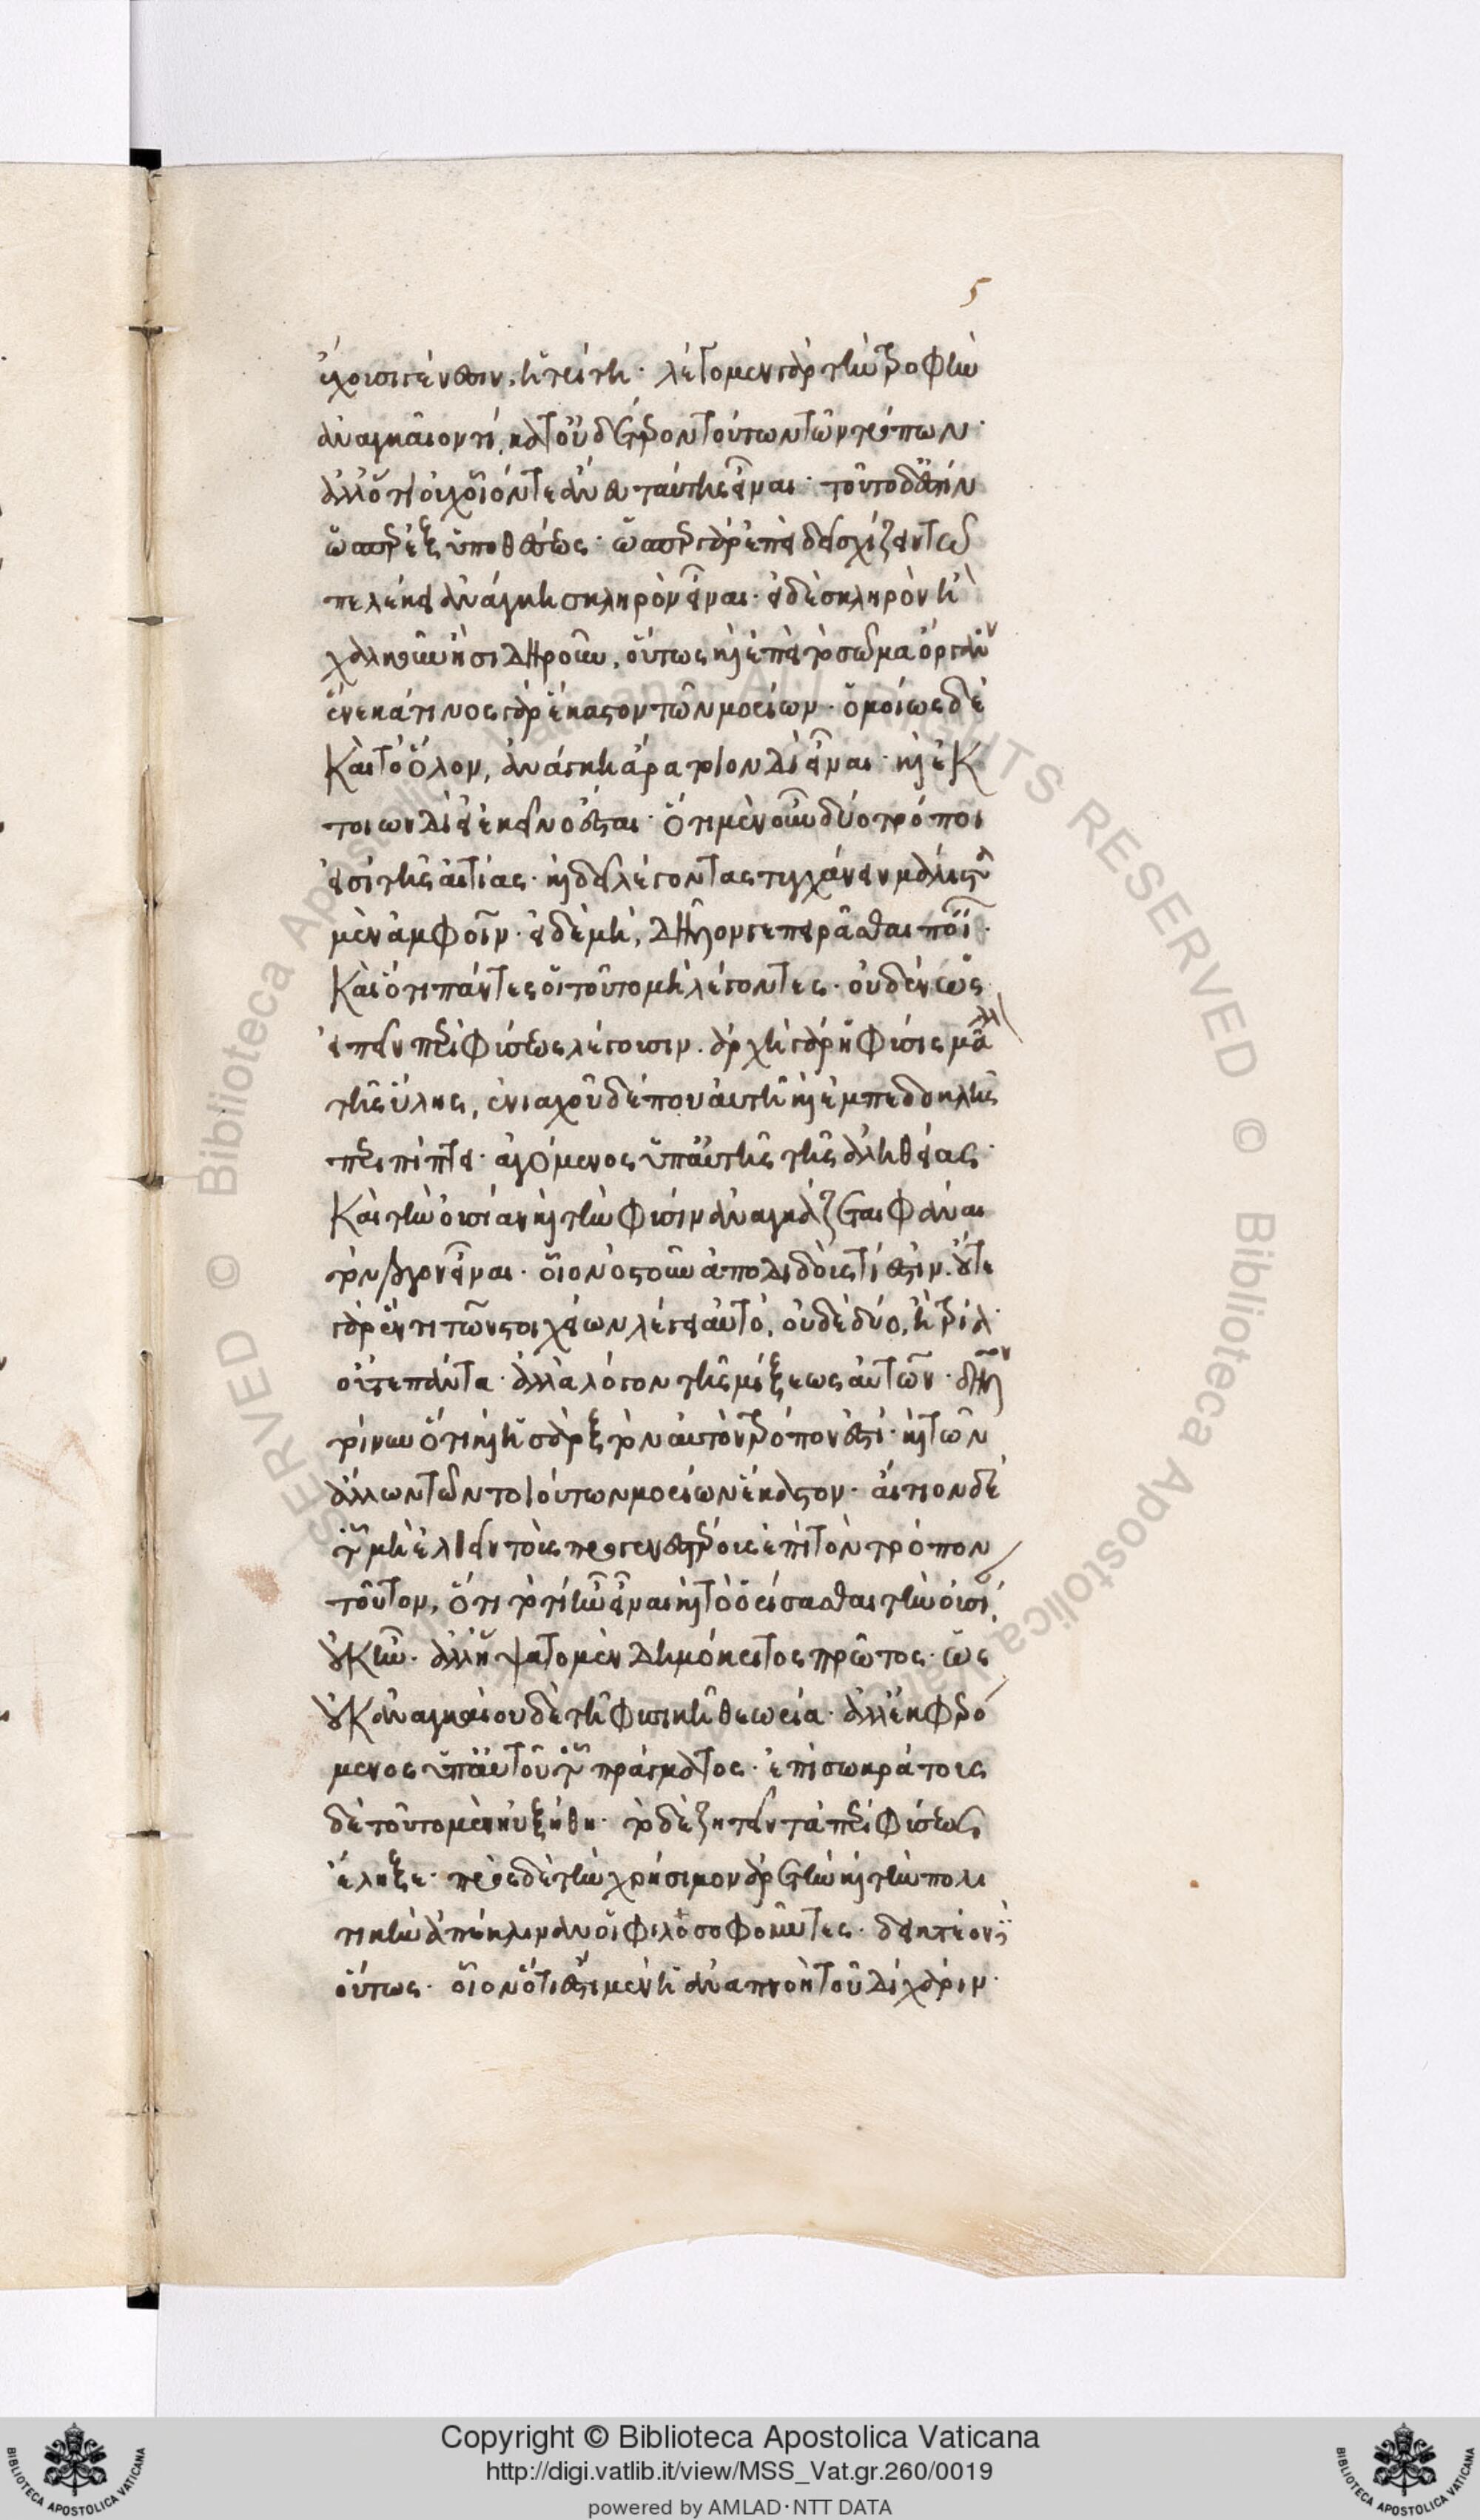 ἔχουσι γένεσιν, ἡ τρίτη· λέγομεν γὰρ τὴν τροφὴν
ἀναγκαῖον τί, κατ' οὐδέτερον τούτων τῶν τρόπων·
ἀλλ' ὅτι οὐχ οἷόν τε ἄνευ ταύτης εἶναι· τοῦτο δ' ἐστὶν
ὥσπερ ἐξ ὑποθέσεως· ὥσπερ γὰρ ἐπεὶ δεῖ σχίζειν τῶ
πελέκει ἀνάγκη σκληρὸν εἶναι· εἰ δὲ σκληρὸν ἢ
χαλκοῦν ἢ σιδηροῦν, οὕτως καὶ ἐπεὶ τὸ σῶμα ὄργανον
ἕνεκά τινος γὰρ ἕκαστον τῶν μορίων· ὁμοίως δὲ
καὶ τὸ ὅλον, ἀνάγκη ἄρα τοιονδὶ εἶναι· καὶ ἐκ
τοιωνδὶ εἰ ἐκεῖνο ἔσται· ὅτι μὲν οὖν δύο τρόποι
εἰσὶ τῆς αἰτίας· καὶ δεῖ λέγοντας τυγχάνειν μάλιστα
μὲν ἀμφοῖν· εἰ δὲ μὴ, δῆλον γε πειρᾶσθαι ποιεῖν·
καὶ ὅτι πάντες οἱ τοῦτο μὴ λέγοντες· οὐδὲν ὡς
εἰπεῖν περὶ φύσεως λέγουσιν. ἀρχὴ γὰρ ἡ φύσις μᾶλλον
τῆς ὕλης, ἐνιαχοῦ δέ που αὐτῆ καὶ ἐμπεδοκλῆς
περιπίπτει· ἀγόμενος ὑπ' αὐτῆς τῆς ἀληθείας·
καὶ τὴν οὐσίαν καὶ τὴν φύσιν ἀναγκάζεται φάναι
τὸν λόγον εἶναι· οἷον ὀστοῦν ἀποδιδοὺς τί ἐστιν. οὔτε
γὰρ ἕν τι τῶν στοιχείων λέγει αὐτό, οὐδὲ δύο, ἢ τρία·
οὔτε πάντα· ἀλλὰ λόγον τῆς μίξεως αὐτῶν· δῆλον
τοίνυν ὅτι καὶ ἡ σὰρξ τὸν αὐτὸν τρόπον ἐστί· καὶ τῶν
ἄλλων τῶν τοιούτων μορίων ἕκαστον· αἴτιον δὲ
τοῦ μὴ ἐλθεῖν τοὺς προγενεστέρους ἐπὶ τὸν τρόπον
τοῦτον, ὅτι τὸ τί ἦν εἶναι καὶ τὸ ὁρίσασθαι τὴν οὐσίαν
οὐκ ἦν· ἀλλ' ἥψατο μὲν δημόκριτος πρῶτος· ὡς
οὐκ ἀναγκαίου δὲ τῆ φυσικῆ θεωρία· ἀλλ' ἐκφερό
μενος ὑπ' αὐτοῦ τοῦ πράγματος· ἐπὶ σωκράτους
δὲ τοῦτο μὲν ηὐξήθη· τὸ δὲ ζητεῖν τὰ περὶ φύσεως
ἔληξε· πρὸς δὲ τὴν χρήσιμον ἀρετὴν καὶ τὴν πολι
τικὴν ἀπέκλιναν οἱ φιλοσοφοῦντες· δεικτέον δ'
οὕτως· οἷον ὅτι ἔστι μὲν ἡ ἀναπνοὴ τουδὶ χάριν·